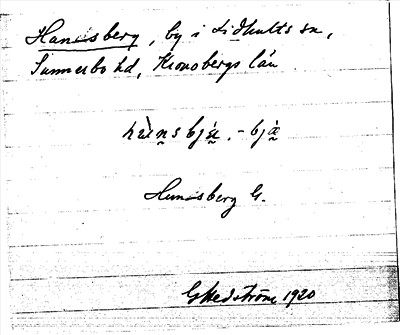 Hannsberg, by i Lidhults sn,
Sunnerbo hd, Kronobergs län
Hunsberg G.
G Hedström 1920